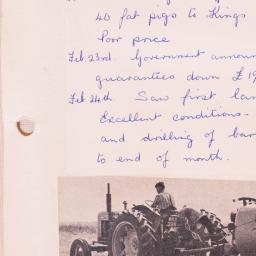 40 fat pigs to Kings
Poor price
Feb. 23rd. Government announ
guarantees down £19
Feb 24th. Saw first lam
Excellent conditions.
and drilling of bar
to end of month.